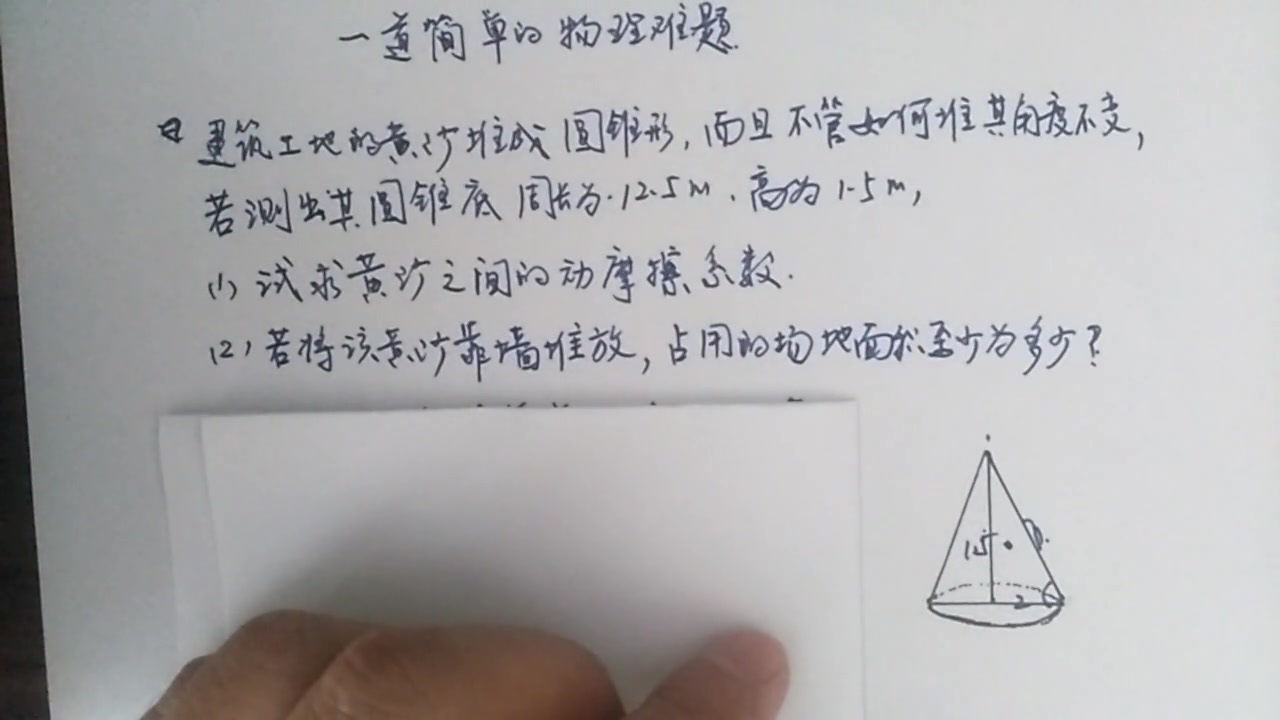 一道简单的物理难题
日 建筑工地的黄沙堆成圆锥形，而且不管如何堆其角度不变，
若测出其圆锥底周长为.12.5m.高为1.5m，
(1)试求黄沙之间的动摩擦系数.
(2)若将该黄沙靠墙堆放，占用的场地面积至少为多少？
1.5
2